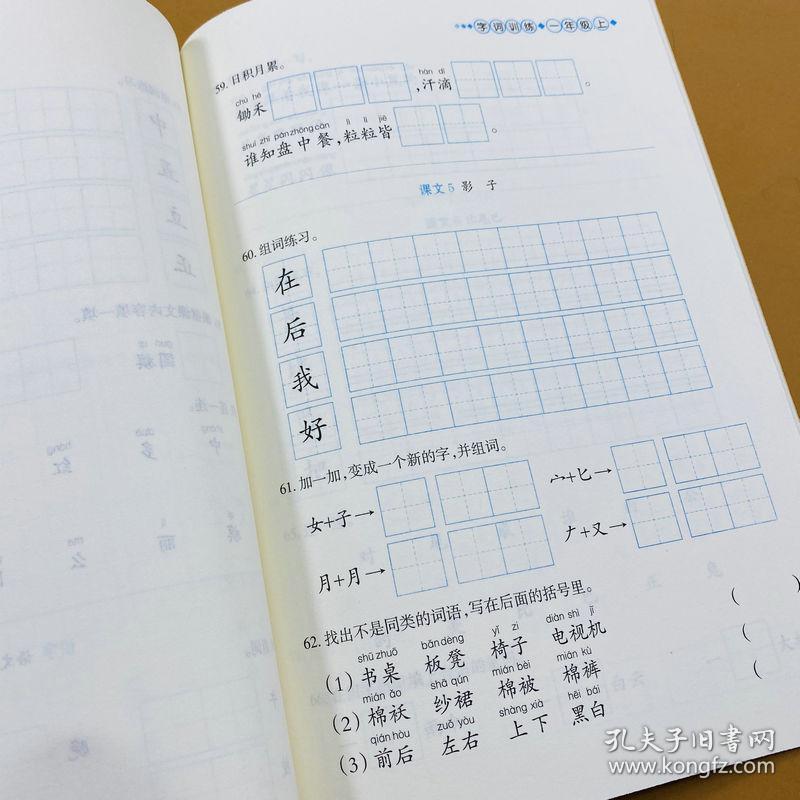 字词训练 一年级上
59. 日积月累。
chú hé hàn dī
锄禾 ,汗滴 。
shuí zhī pán zhōng cān lì lì jiē
谁知盘中餐,粒粒皆 。
课文5 影 子
60. 组词练习。
在
后
我
好
61. 加一加,变成一个新的字,并组词。
女+子→ 宀+匕→
月+月→ 𠂇+又→
62. 找出不是同类的词语,写在后面的括号里。
shū zhuō bǎn dèng yǐ zi diàn shì jī
(1) 书桌 板凳 椅子 电视机 ( )
mián ǎo shā qún mián bèi mián kù
(2) 棉袄 纱裙 棉被 棉裤 (
qián hòu zuǒ yòu shàng xià hēi bái
(3) 前后 左右 上下 黑白 (
孔夫子旧书网
www.kongfz.com